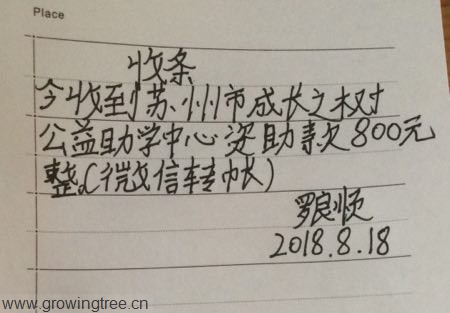 Place
收条
今收到苏州市成长之树
公益助学中心资助款800元
整。(微信转帐)
罗良顺
2018.8.18
www.growingtree.cn